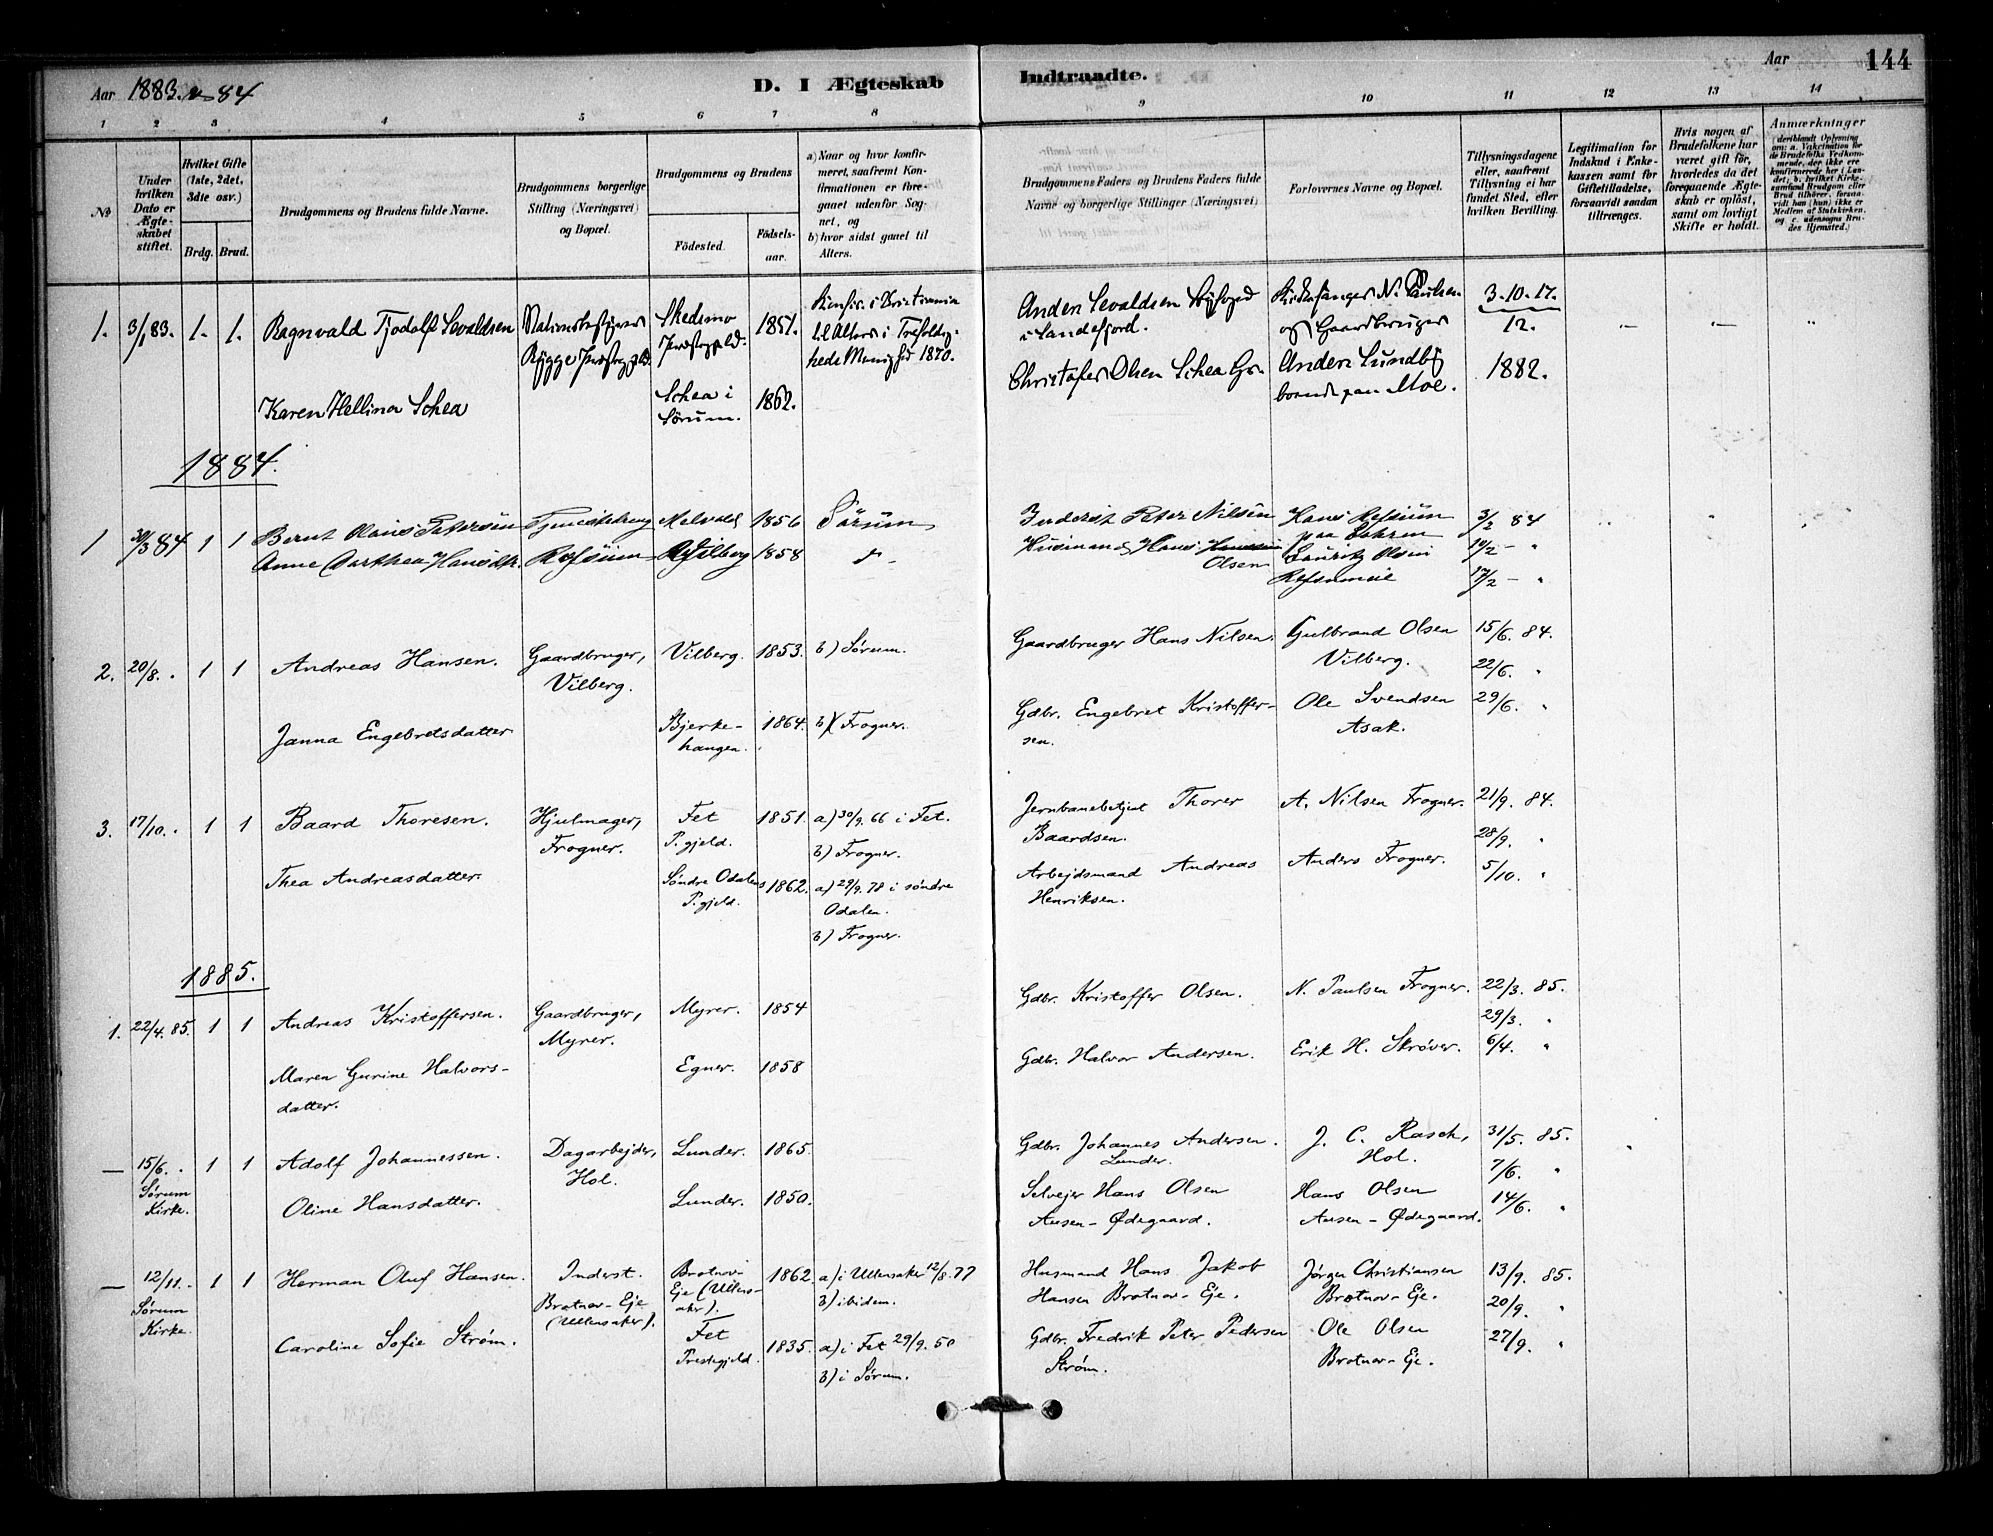 Aar 1883. & 84
D. I Ægteskab Indtraadte.
Aar 144
1 2 3 4 5 6 7 8 9 10 11 12 13 14
№
Under hvilken Dato er Ægteskabet stiftet.
Hvilket Gifte (1ste, 2det, 3dte osv.)
Brdg. Brud.
Brudgommens og Brudens fulde Navne.
Brudgommens borgerlige Stilling (Næringsvei) og Bopæl.
Brudgommens og Brudens
Födested.
Födselsaar.
a) Naar og hvor konfirmeret, saafremt Konfirmationen er foregaaet udenfor Sognet, og
b) hvor sidst gaaet til Alters.
Brudgommens Faders og Brudens Faders fulde Navne og borgerlige Stillinger (Næringsvei)
Forlovernes Navne og Bopæl.
Tillysningsdagene eller, saafremt Tillysning ei har fundet Sted, efter hvilken Bevilling.
Legitimation for Indskud i Enkekassen samt for Giftetilladelse, forsaavidt saadan tiltrænges.
Hvis nogen af Brudefolkene har været gift för, hvorledes da det foregaaende Ægteskab er oplöst, samt om lovligt Skifte er holdt.
Anmærkninger
1. 3/1 83. 1. 1. Ragnvald Tjodolf Sevaldsen
Rygge
Skedsmo
1857.
Konfir. i Christiania
til Alters i
1870.
Anders Sevaldsen
i Sandefjord.
Kirkesanger N. Paulsen
og Gaardbruger
3-10-17.
12.
Karen Hellina Schea
Schea i
Sörum.
1862.
Christofer Olsen Schea
Anders Lundby
boende paa Moe.
1882.
1884.
1 30/3 84 1 1 Bernt Olaus Petersen
Tjenestedreng
1856 Sørum
Inderst Peter Nilsen
Hans Refsum
3/2 84
Anne Marthea Hansdtr.
Refsum
Vilberg 1858
Husmand Hans
Olsen
Lauritz Olsen
10/2 - "
17/2 - "
2. 20/8. 1 1 Andreas Hansen.
Gaardbruger,
Vilberg.
Vilberg. 1853. b) Sørum.
Gaardbruger Hans Nilsen.
Gulbrand Olsen
Vilberg.
15/6. 84.
22/6. "
Janna Engebretsdatter
Bjerke-
hangen.
1864. b) Frogner.
Gdbr. Engebret Kristoffer-
sen.
Ole Svendsen
Asak.
29/6. "
3. 17/10. 1 1 Baard Thoresen.
Hjulmager,
Frogner.
Fet
P.gjeld.
1851. a) 30/9. 66 i Fet.
b) Frogner.
Jernbanebetjent Thorer
Baardsen.
A. Nilsen Frogner.
21/9. 84.
28/9. "
Thea Andreasdatter.
Søndre Odalens
P.gjeld.
1862. a) 29/9. 78 i søndre
Odalen.
b) Frogner.
Arbejdsmand Andreas
Henriksen.
Anders Frogner.
5/10. "
1885.
1. 22/4. 85. 1 1 Andreas Kristoffersen.
Gaardbruger,
Myrer.
Myrer. 1854
Gdbr. Kristoffer Olsen.
N. Paulsen Frogner.
22/3. 85.
29/3. "
Maren Gurine Halvors-
datter.
Egner. 1858
Gdbr. Halvor Andersen.
Erik H. Skrøver.
6/4. "
— 15/6.
Sørum
Kirke.
1 1 Adolf Johannessen.
Dagarbejder,
Hol.
Lunder. 1865.
Gdbr. Johannes Andersen.
Lunder.
J. C. Rasch,
Hol.
31/5. 85.
7/6. "
Oline Hansdatter.
Lunder. 1850.
Selvejer Hans Olsen
Ausen-Ødegaard.
Hans Olsen
Ausen-Ødegaard.
14/6. "
— 12/11.
Sørum
Kirke.
1 1 Herman Oluf Hansen.
Inderst.
Brotnov-Eje
(Ullensaker).
Brotnov-
Eje (Ullens-
aker).
1862. a) i Ullensaker 12/8. 77
b) ibidem.
Husmand Hans Jakob
Hansen Brotnov-Eje.
Jørgen Christiansen
Brotnov-Eje.
13/9. 85.
20/9. "
Caroline Sofie Strøm.
Fet
Prestegjeld.
1835. a) i Fet 29/9. 50
b) i Sørum.
Gdbr. Fredrik Peter Pedersen
Strøm.
Ole Olsen
Brotnov-Eje.
27/9. "